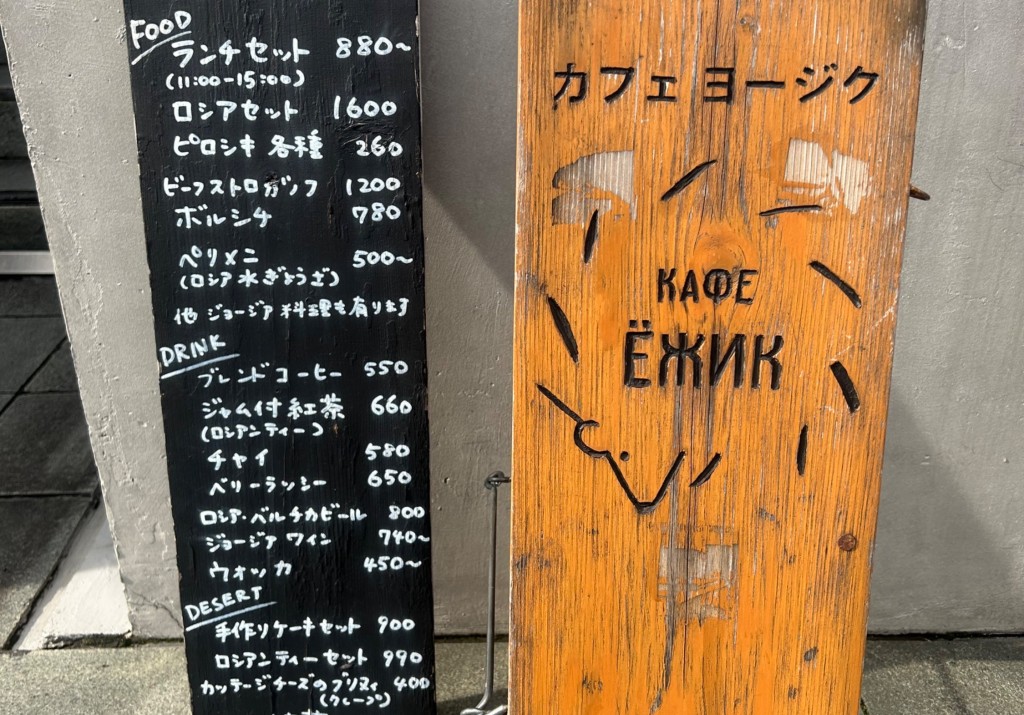 FOOD
ランチセット 880~
(11:00-15:00)
ロシアセット 1600
ピロシキ 各種 260
ビーフストロガノフ 1200
ボルシチ 780
ペリメニ 500~
(ロシア水ぎょうざ)
他 ジョージア料理も有ります
DRINK
ブレンドコーヒー 550
ジャム付紅茶 660
(ロシアンティー)
チャイ 580
ベリーラッシー 650
ロシア・バルチカビール 800
ジョージア ワイン 740~
ウォッカ 450~
DESERT
手作りケーキセット 900
ロシアンティーセット 990
カッテージチーズのブリヌィ 400
(クレープ)
カフェ ヨージク
КАФЕ
ЁЖИК